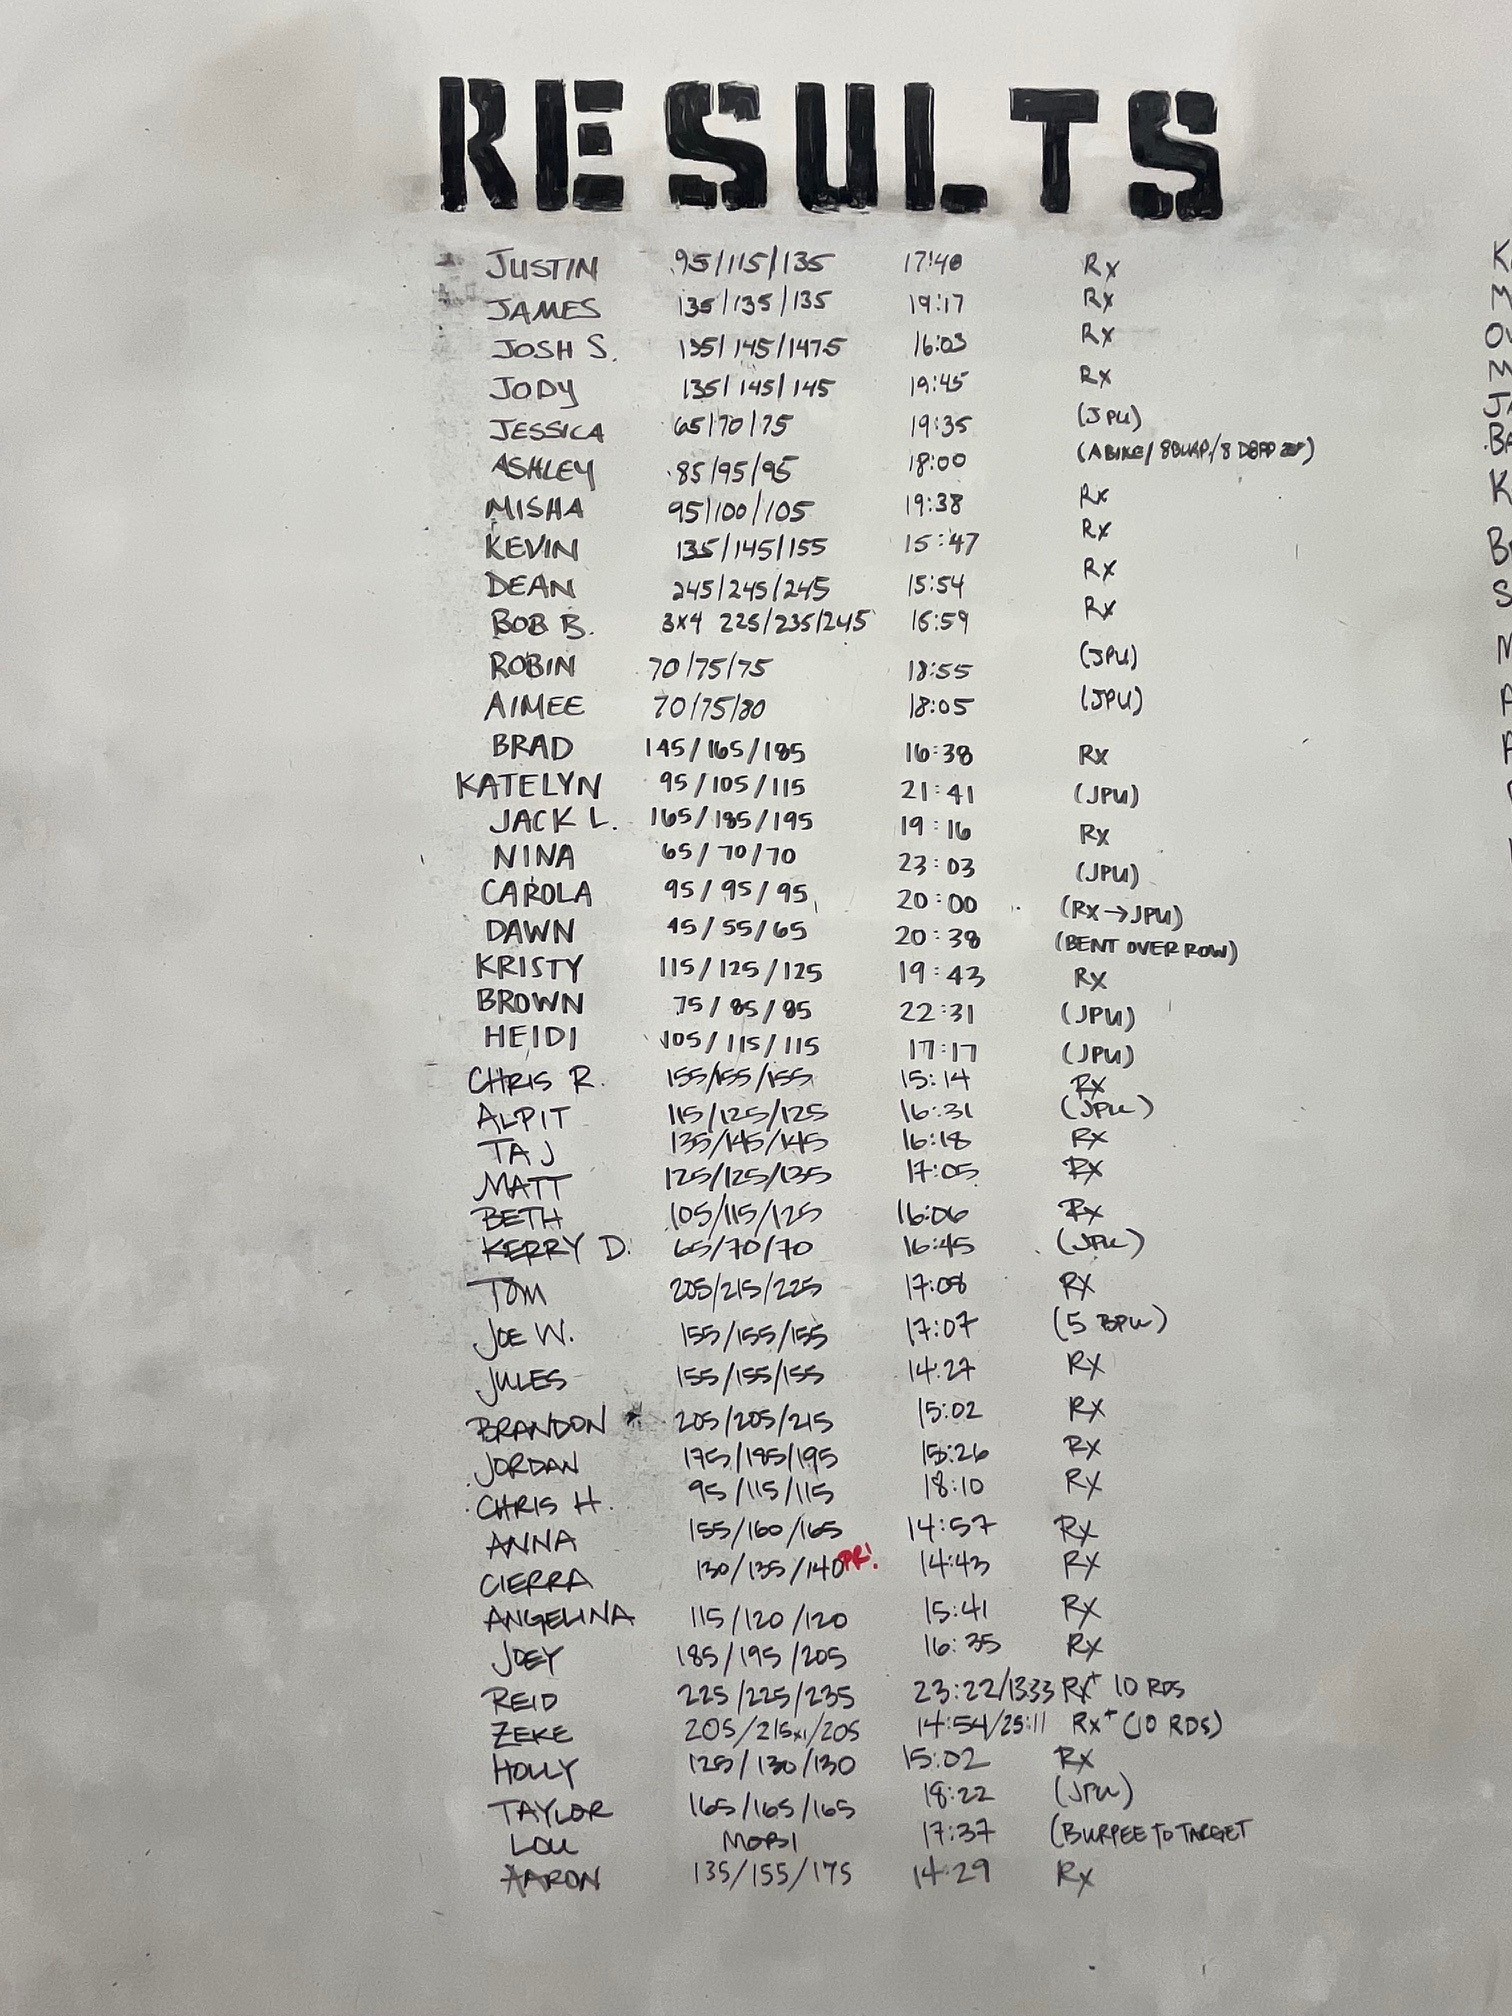 RESULTS
JUSTIN 95/115/135 17:40 Rx
JAMES 135/135/135 19:17 Rx
JOSH S. 135/145/147.5 16:03 Rx
JODY 135/145/145 19:45 Rx
JESSICA 65/70/75 19:35 (JPU)
ASHLEY 85/95/95 18:00 (ABIKE/8BURP/8
MISHA 95/100/105 19:38 Rx
KEVIN 135/145/155 15:47 Rx
DEAN 245/245/245 15:54 Rx
BOB B. 3x4 225/235/245 16:59 Rx
ROBIN 70/75/75 18:55 (JPU)
AIMEE 70/75/80 18:05 (JPU)
BRAD 145/165/185 16:38 Rx
KATELYN 95/105/115 21:41 (JPU)
JACK L. 165/185/195 19:16 Rx
NINA 65/70/70 23:03 (JPU)
CAROLA 95/95/95 20:00 (Rx→JPU)
DAWN 45/55/65 20:38 (BENT OVER ROW)
KRISTY 115/125/125 19:43 Rx
BROWN 75/85/85 22:31 (JPU)
HEIDI 105/115/115 17:17 (JPU)
CHRIS R. 155/155/155 15:14 Rx
ALPIT 115/125/125 16:31 (JPU)
TAJ 135/145/145 16:18 Rx
MATT 125/125/135 17:05 Rx
BETH 105/115/125 16:06 Rx
KERRY D. 65/70/70 16:45 (JPU)
TOM 205/215/225 17:08 Rx
JOE W. 155/155/155 17:07 (5 BPU)
JULES 155/155/155 14:27 Rx
BRANDON * 205/205/215 15:02 Rx
JORDAN 175/185/195 15:26 Rx
CHRIS H. 95/115/115 18:10 Rx
ANNA 155/160/165 14:57 Rx
CIERRA 130/135/140 PR! 14:43 Rx
ANGELINA 115/120/120 15:41 Rx
JOEY 185/195/205 16:35 Rx
REID 225/225/235 23:22/1333 Rx+ 10 RDS
ZEKE 205/215x1/205 14:54/25:11 Rx+ (10 RDS)
HOLLY 125/130/130 15:02 Rx
TAYLOR 165/165/165 18:22 (JPU)
LOU MOBI 17:37 (BURPEE TO TARGET
AARON 135/155/175 14:29 Rx